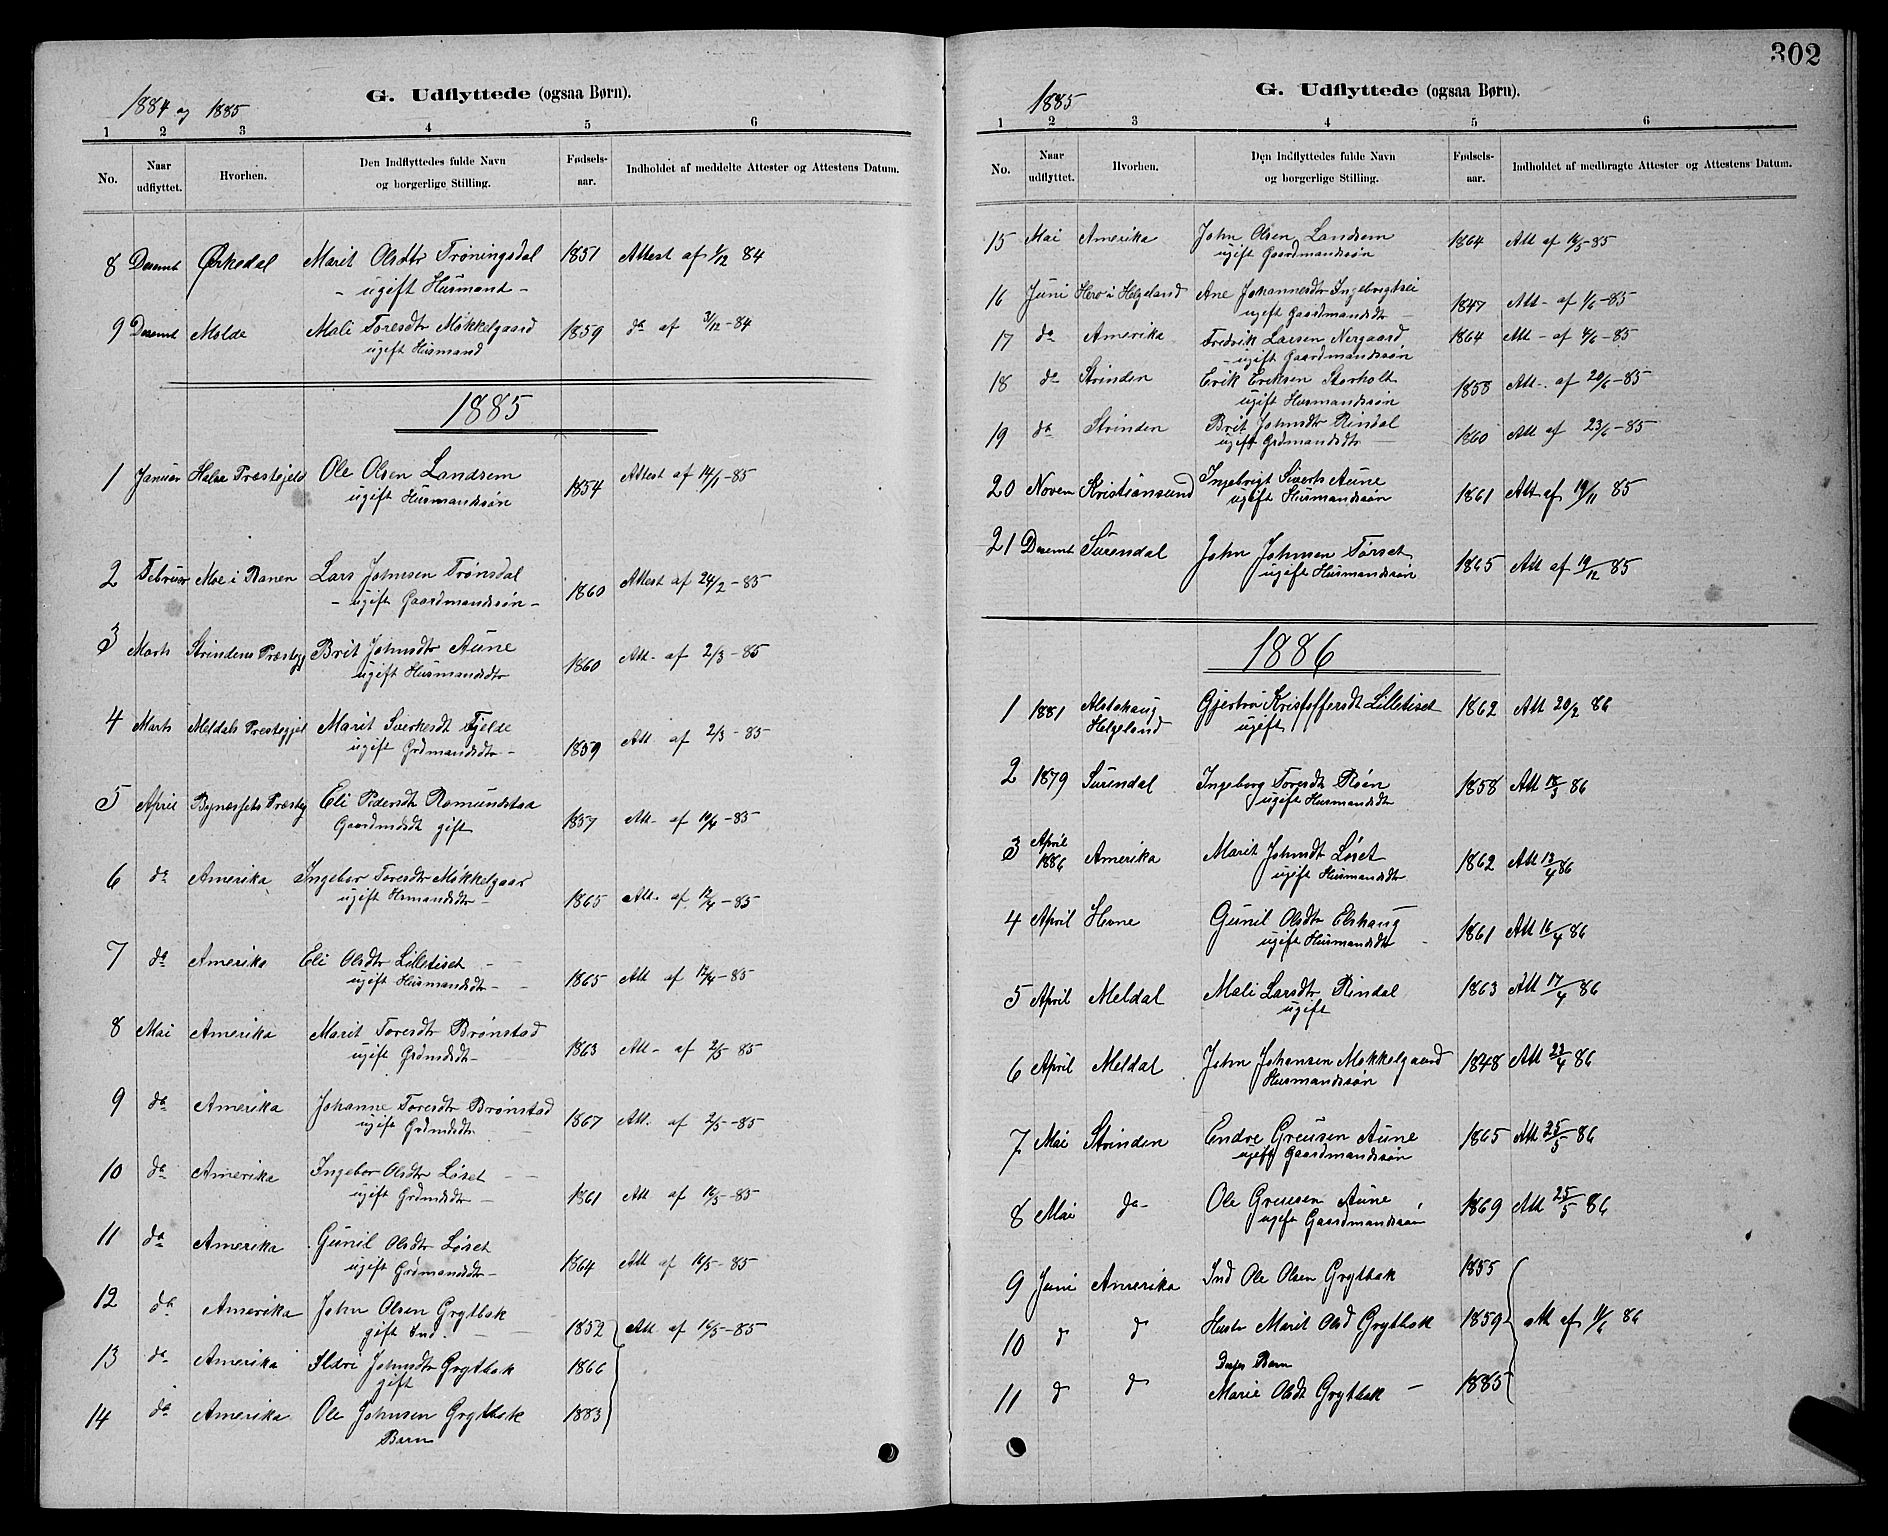 1884 og 1885
G. Udflyttede (ogsaa Børn).
1 2 3 4 5 6
No. Naar udflyttet. Hvorhen. Den Indflyttedes fulde Navn og borgerlige Stilling. Fødsels-aar. Indholdet af meddelte Attester og Attestens Datum.
8 Desemt Ørkedal Marit Olsdtr Trøningsdal 1851 Attest af 1/12 84
- ugift Husmand -
9 Desemt Molde Mali Toresdtr Møkkelgaard 1859 do af 3/12-84
ugift Husmand
1885
1 Januar Halsa Præstegjeld Ole Olsen Landsem 1854 Attest af 14/1-85
ugift Husmandssøn
2 Februar Moe i Ranen Lars Johnsen Trønsdal 1860 Attest af 24/2-85
- ugift Gaardmandssøn -
3 Marts Strindens Præstegj Brit Johnsdtr Aune 1860 Att- af 2/3-85
ugift Husmandsdtr
4 Marts Meldals Prestegjel Marit Sverkesdt Fjelde 1859 Att. af 2/3-85
ugift Grdmandsdtr -
5 April Bynessets Præsteg Eli Pedersdt Romundstaa 1857 Att- af 10/4-85
Gaardmdsdt gift
6 do Amerika Ingebor Toresdtr Møkkelgaar 1865 Att- af 12/4-85
ugift Hsmandsdtr -
7 do Amerika Eli Olsdtr Lilletiset - - 1865 Att af 12/4-85
ugift Husmandsdtr -
8 Mai Amerika Marit Toresdtr Brønstad 1863 Att- af 2/5-85
ugift Grdmdsdtr -
9 do Amerika Johanne Toresdtr Brønstad 1867 Att. af 2/5-85
ugift Grdmdsdtr
10 do Amerika Ingebor Olsdtr Løset - - 1861 Att af 16/5-85
ugift Grdmdsdtr -
11 do Amerika Gunil Olsdtr Løset 1864 Att af 16/5-85
ugift Grdmandsdtr -
12 do Amerika John Olsen Grytbak 1852 Att. af 16/5-85
gift Ind. -
13 do Amerika Sldri Johnsdtr Grytbak 1866
gift
14 do Amerika Ole Johnsen Grytbak 1883
Barn
302
1885
G. Udflyttede (ogsaa Børn).
1 2 3 4 5 6
No. Naar udflyttet. Hvorhen. Den Indflyttedes fulde Navn og borgerlige Stilling. Fødsels-aar. Indholdet af medbragte Attester og Attestens Datum.
15 Mai Amerika John Olsen Landsem 1864 Att af 16/5-85
ugift Gaardmandssøn
16 Juni Herø i Helgeland Ane Johannesdtr Ingebrigtsli 1847 Att- af 1/6-85
ugift Gaardmandsdtr -
17 do Amerika Fredrik Larsen Nergaard 1864 Att- af 4/6-85
- ugift Gaardmandssøn
18 do Strinden Erik Eriksen Storholt 1858 Att-. af 20/6-85
ugift Husmandssøn
19 do Strinden Brit Johnsdtr Rindal 1860 Att af 23/6-85
ugift Grdmandsdtr -
20 Novem Kristiansund Ingebrigt Siverts Aune 1861 Att af 19/11 85
ugift Husmandssøn
21 Desemt Surendal John Johnsen Tørset 1865 Att af 19/12 85
ugift Husmandssøn
1886
1 1881 Alstahaug Helgeland Gjertru Kristoffersdt Lilletiset 1862 Att 20/2 86
ugift
2 1879 Surendal Ingeborg Toresdt Røen 1858 Att 18/3 86
ugift Husmandsdtr
3 April 1886 Amerika Marit Johnsdt Løset 1862 Att 13/4 86
ugift Husmandsdtr
4 April Hevne Gunil Olsdtr Elshaug 1861 Att 16/4 86
ugift Husmandsdtr -
5 April Meldal Mali Larsdtr Rindal 1863 Att 17/4 86
ugift
6 April Meldal John Johansen Møkkelgaard 1848 Att 22/4 86
Husmandssøn
7 Mai Strinden Endre Greusen Aune 1865 Att 25/5 86
ugift Gaardmandssøn
8 Mai do- Ole Greusen Aune 1869 Att 25/5 86
ugift Gaardmandssøn
9 Juni Amerika Ind Ole Olsen Grytbak 1855
10 d d Hustr Marit Olsd Grytbak 1859 Att af 11/6 86
Deres Barn
11 d d Marie Olsdt Grytbak - 1885